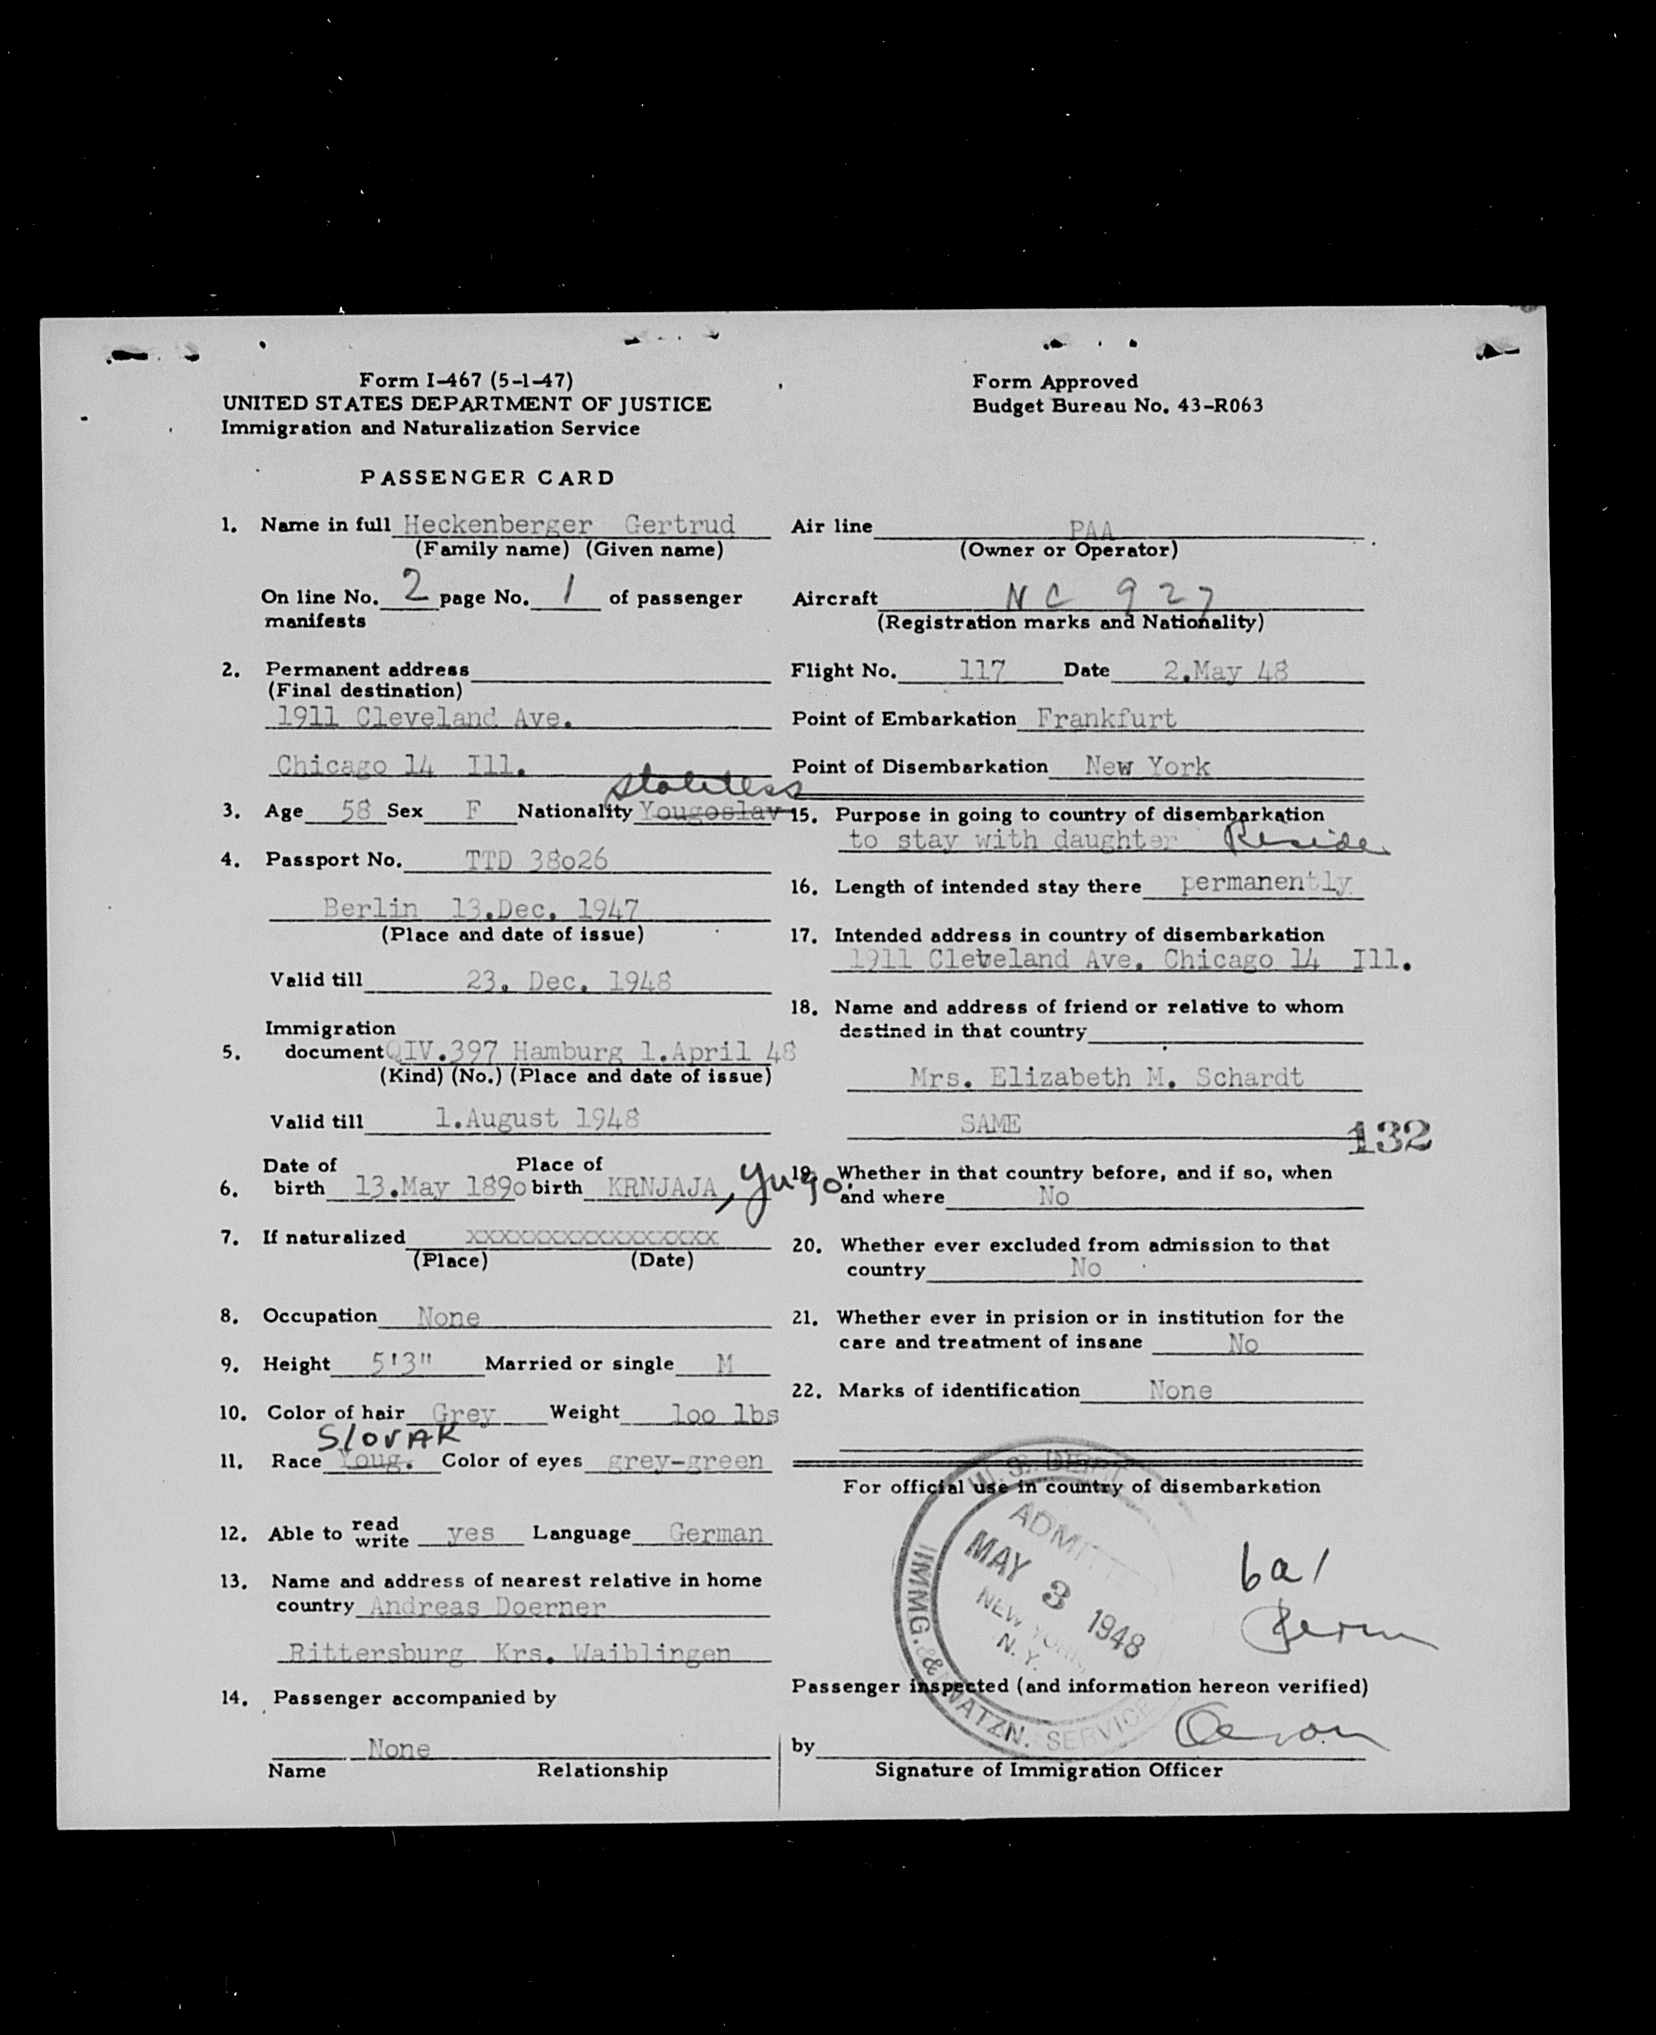 Form I-467 (5-1-47)
UNITED STATES DEPARTMENT OF JUSTICE
Immigration and Naturalization Service
Form Approved
Budget Bureau No. 43-R063
PASSENGER CARD
1. Name in full Heckenberger Gertrud
(Family name) (Given name)
On line No. 2 page No. 1 of passenger
manifests
2. Permanent address
(Final destination)
1911 Cleveland Ave.
Chicago 14 Ill.
stateless
3. Age 58 Sex F Nationality Yougoslav
4. Passport No. TTD 38o26
Berlin 13.Dec. 1947
(Place and date of issue)
Valid till 23. Dec. 1948
Immigration
5. document QIV.397 Hamburg 1.April 48
(Kind) (No.) (Place and date of issue)
Valid till 1.August 1948
Date of Place of
6. birth 13.May 189o birth KRNJAJA, Yugo.
7. If naturalized xxxxxxxxxxxxxxxxxx
(Place) (Date)
8. Occupation None
9. Height 5'3" Married or single M
10. Color of hair Grey Weight 1oo lbs
SLOVAK
11. Race Youg. Color of eyes grey-green
12. Able to read write yes Language German
13. Name and address of nearest relative in home
country Andreas Doerner
Rittersburg Krs. Waiblingen
14. Passenger accompanied by
None
Name Relationship
Air line PAA
(Owner or Operator)
Aircraft NC 927
(Registration marks and Nationality)
Flight No. 117 Date 2.May 48
Point of Embarkation Frankfurt
Point of Disembarkation New York
15. Purpose in going to country of disembarkation
to stay with daughter Reside
16. Length of intended stay there permanently
17. Intended address in country of disembarkation
1911 Cleveland Ave. Chicago 14 Ill.
18. Name and address of friend or relative to whom
destined in that country
Mrs. Elizabeth M. Schardt
SAME
132
19. Whether in that country before, and if so, when
and where No
20. Whether ever excluded from admission to that
country No
21. Whether ever in prision or in institution for the
care and treatment of insane No
22. Marks of identification None
For official use in country of disembarkation
U.S. DEPT.
ADMITT
MAY 3 1948
NEW YORK,
N.Y.
IMMG. & NATZN. SERVICE
Passenger inspected (and information hereon verified)
by
Signature of Immigration Officer